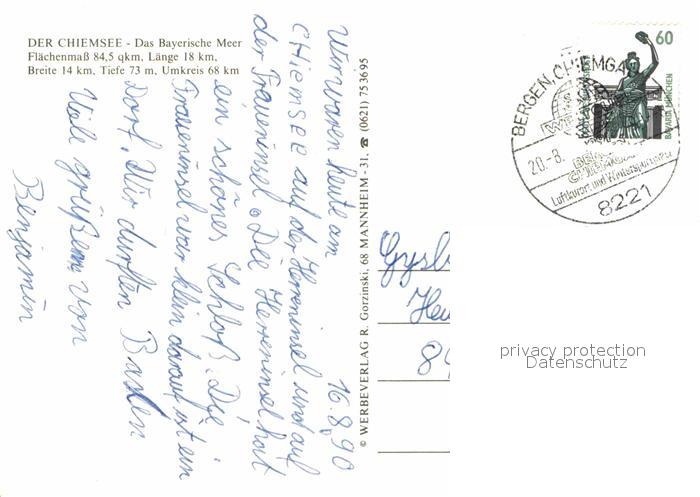 DER CHIEMSEE - Das Bayerische Meer
Flächenmaß 84,5 qkm, Länge 18 km,
Breite 14 km, Tiefe 73 m, Umkreis 68 km
16.8.90
Wir waren heute am
CHiemSEE auf der Herreninsel und auf
der Fraueninsel. Die Herreninsel hat
ein schönes Schloß. Die
Fraueninsel war klein darauf ist ein
Dorf. Wir durften Baden
Viele grüße von
Benjamin
© WERBEVERLAG R. Gorzinski, 68 MANNHEIM - 31, ☎ (0621) 753695
60
BAVARIA MÜNCHEN
BERGEN, CHIEMGAU
20.-8.
Luftkurort und Wintersportplatz
8221
privacy protection
Datenschutz